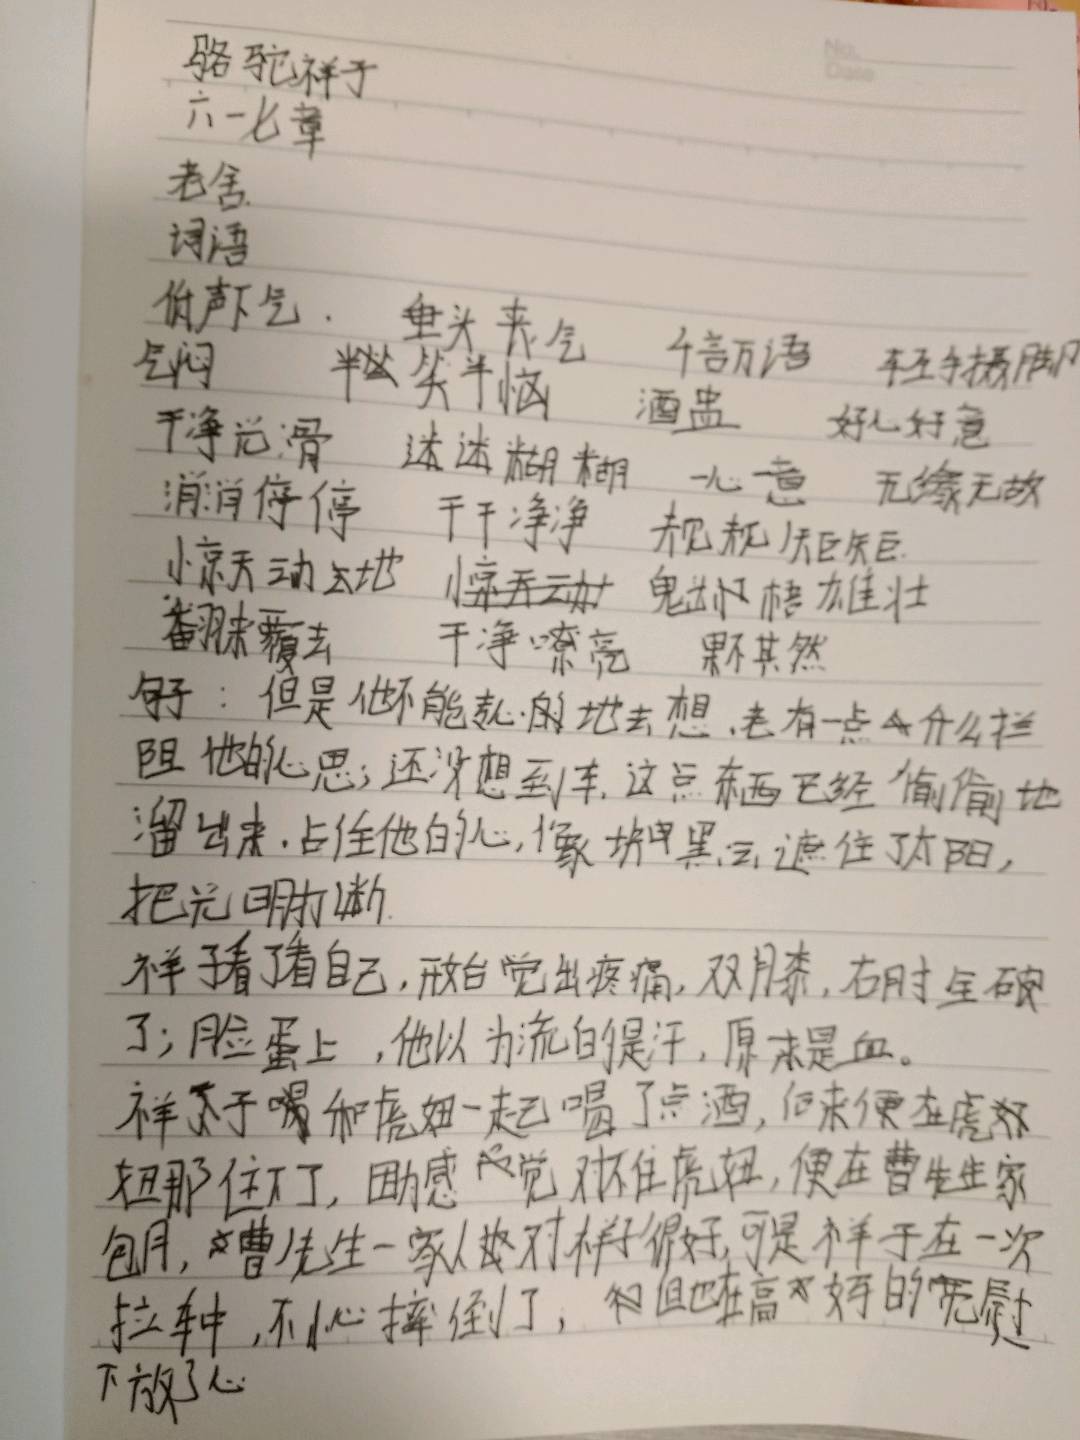 No.
Date
骆驼祥子
六一七章
老舍
词语
低声下气. 垂头丧气 千言万语 轻手摄脚
气闷 半笑半恼 酒盅 好心好意
干净光滑 迷迷糊糊 一心一意 无缘无故
消消停停 干干净净 规规矩矩
惊天动地 魁梧雄壮
翻来覆去 干净嘹亮 果不其然
句子：但是他不能专心的地去想，老有一点什么拦
阻他的心思；还没想到车，这点东西已经偷偷地
溜出来，占住他的心，像块黑云遮住了太阳，
把光明打断.
祥子看了看自己，开始觉出疼痛，双膝，右肘全破
了；脸蛋上，他以为流的是汗，原来是血。
祥子喝和虎妞一起喝了点酒，后来便在虎
妞那住不了，因为感觉对不住虎妞，便在曹先生家
包月，曹先生一家人对祥子很好，可是祥子在一次
拉车中，不小心摔倒了，但也在高妈的宽慰
下放了心